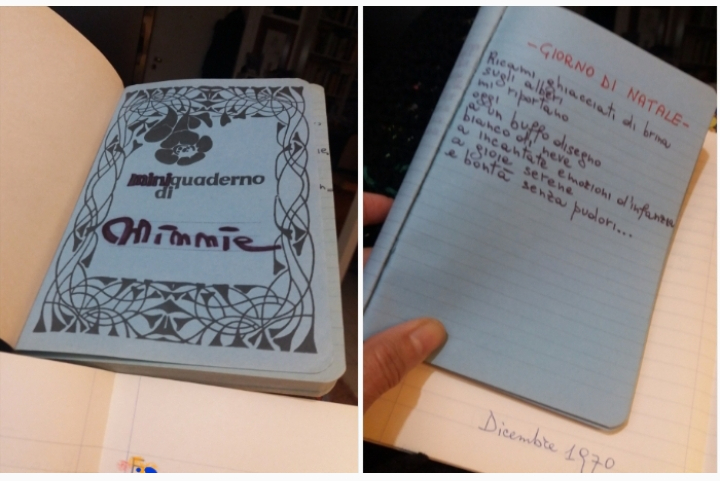 miniquaderno
di
Mimmie
-GIORNO DI NATALE-
Ricami ghiacciati di brina
sugli alberi
mi riportano
oggi
a un buffo disegno
bianco di neve
a incantate emozioni d'infanzia
a gioie serene
e bontà senza pudori...
Dicembre 1970